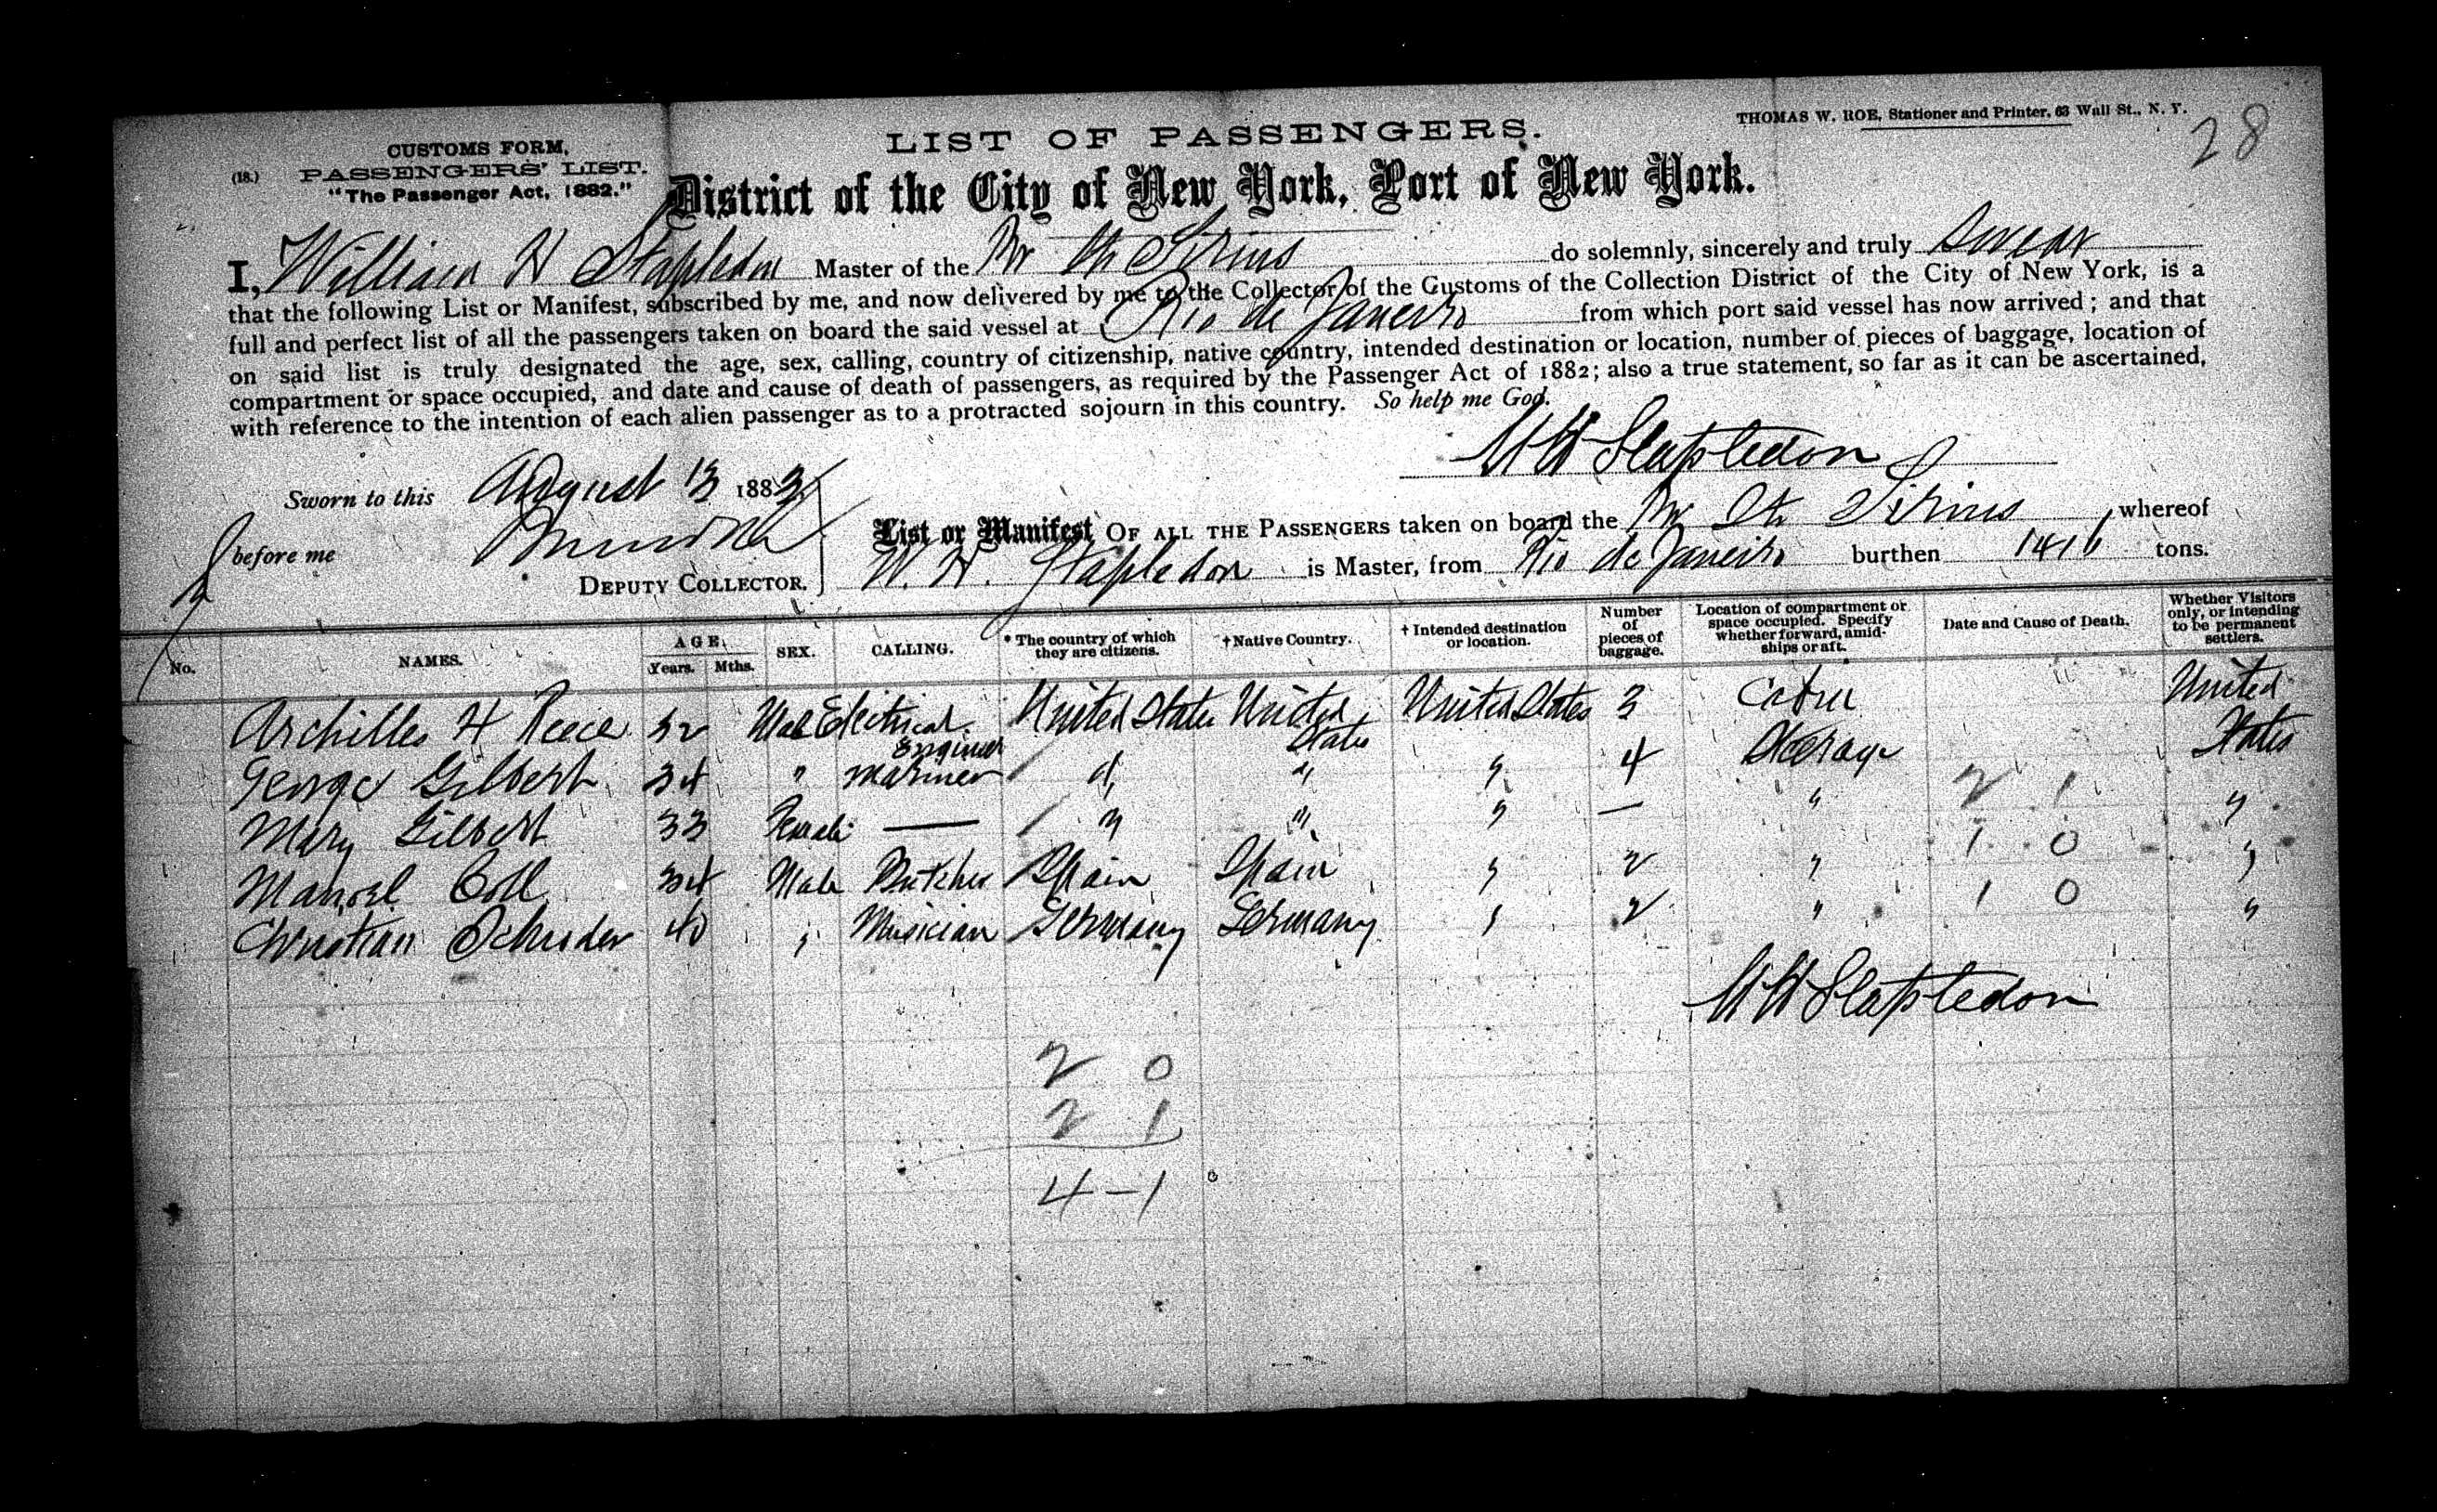 THOMAS W. ROE, Stationer and Printer, 63 Wall St., N. Y.
28
CUSTOMS FORM,
LIST OF PASSENGERS.
(18.) PASSENGERS' LIST.
"The Passenger Act, 1882."
District of the City of New York, Port of New York.
I, William H Stapledon Master of the Br Str Sirius do solemnly, sincerely and truly swear
that the following List or Manifest, subscribed by me, and now delivered by me to the Collector of the Customs of the Collection District of the City of New York, is a
full and perfect list of all the passengers taken on board the said vessel at Rio de Janeiro from which port said vessel has now arrived; and that
on said list is truly designated the age, sex, calling, country of citizenship, native country, intended destination or location, number of pieces of baggage, location of
compartment or space occupied, and date and cause of death of passengers, as required by the Passenger Act of 1882; also a true statement, so far as it can be ascertained,
with reference to the intention of each alien passenger as to a protracted sojourn in this country. So help me God.
W H Stapledon
Sworn to this August 13 1883
before me
DEPUTY COLLECTOR.
List or Manifest OF ALL THE PASSENGERS taken on board the Br Str Sirius whereof
W. H. Stapledon is Master, from Rio de Janeiro burthen 1416 tons.
No. NAMES. AGE. Years. Mths. SEX. CALLING. * The country of which they are citizens. † Native Country. † Intended destination or location. Number of pieces of baggage. Location of compartment or space occupied. Specify whether forward, amidships or aft. Date and Cause of Death. Whether Visitors only, or intending to be permanent settlers.
Archilles H Reece 32 Male Electrical Engineer United States United States United States 3 Cabin United States
George Gilbert 34 " Mariner " " " 4 Steerage
Mary Gilbert 33 Female — " " " — " 2 1 "
Manoel Coll 34 Male Butcher Spain Spain " 2 " 1 0 "
Christian Schruder 40 " Musician Germany Germany " 2 " 1 0 "
W H Stapledon
2 0
2 1
4 - 1